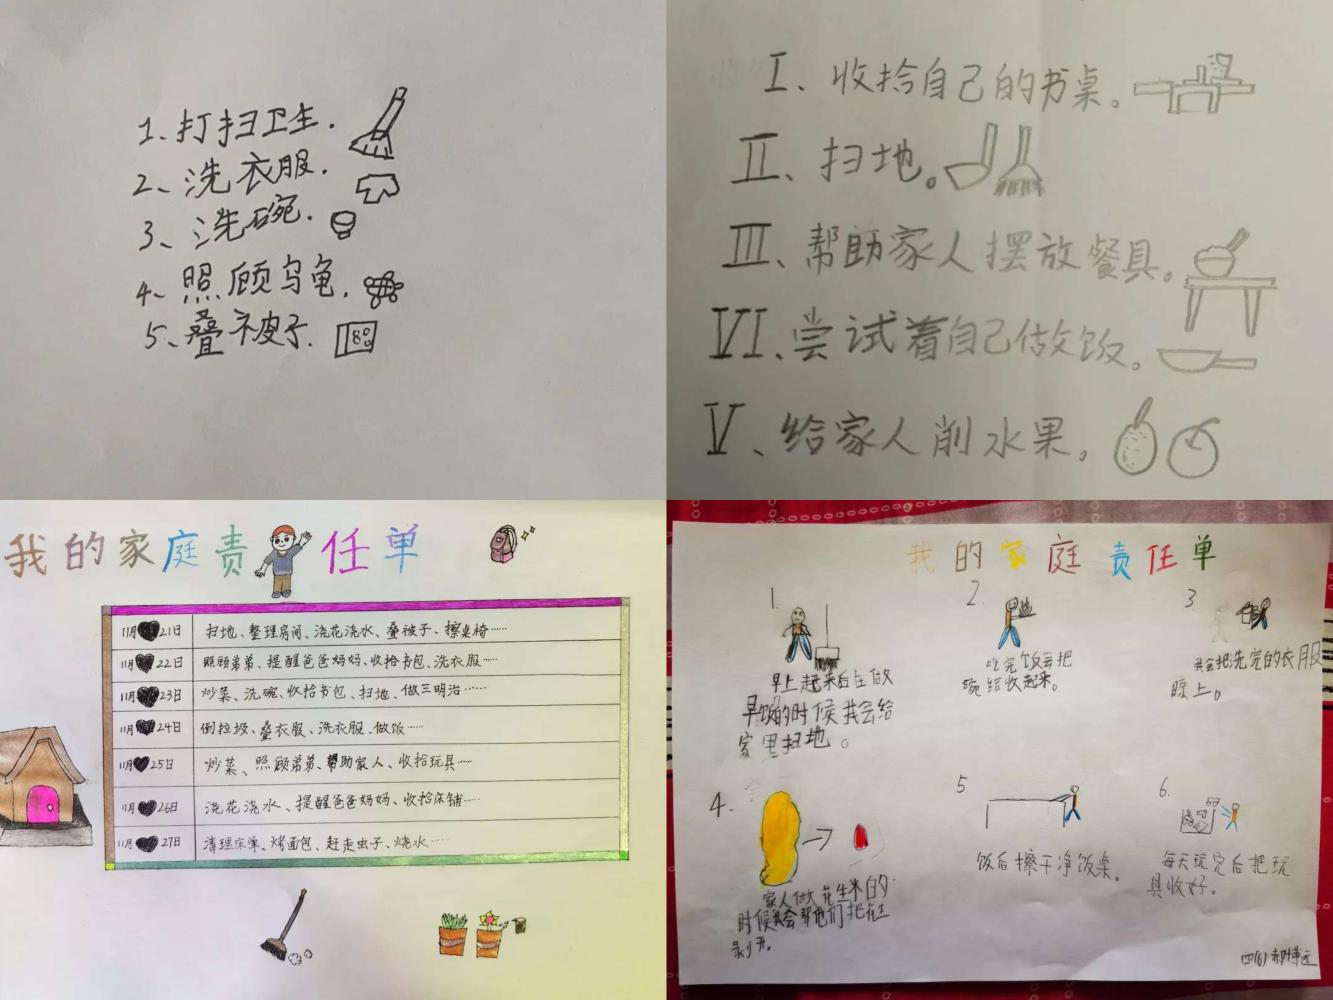 1、打扫卫生.
2、洗衣服.
3、洗碗.
4、照顾乌龟.
5、叠被子.
I、收拾自己的书桌。
II、扫地。
III、帮助家人摆放餐具。
VI、尝试着自己做饭。
V、给家人削水果。
我的家庭责任单
11月21日 扫地、整理房间、浇花浇水、叠被子、擦桌椅……
11月22日 照顾弟弟、提醒爸爸妈妈、收拾书包、洗衣服……
11月23日 炒菜、洗碗、收拾书包、扫地、做三明治……
11月24日 倒垃圾、叠衣服、洗衣服、做饭……
11月25日 炒菜、照顾弟弟、帮助家人、收拾玩具……
11月26日 浇花浇水、提醒爸爸妈妈、收拾床铺……
11月27日 清理床单、烤面包、赶走虫子、烧水……
我的家庭责任单
1.
早上起来后在做
早饭的时候我会给
家里扫地。
2.
吃完饭弃把
碗给收起来。
3
我会把洗完的衣服
晾上。
4.
家人做花生米的
时候我会帮他们把花生
剥开。
5.
饭后擦干净饭桌。
6.
每天玩完后把玩
具收好。
四(6)